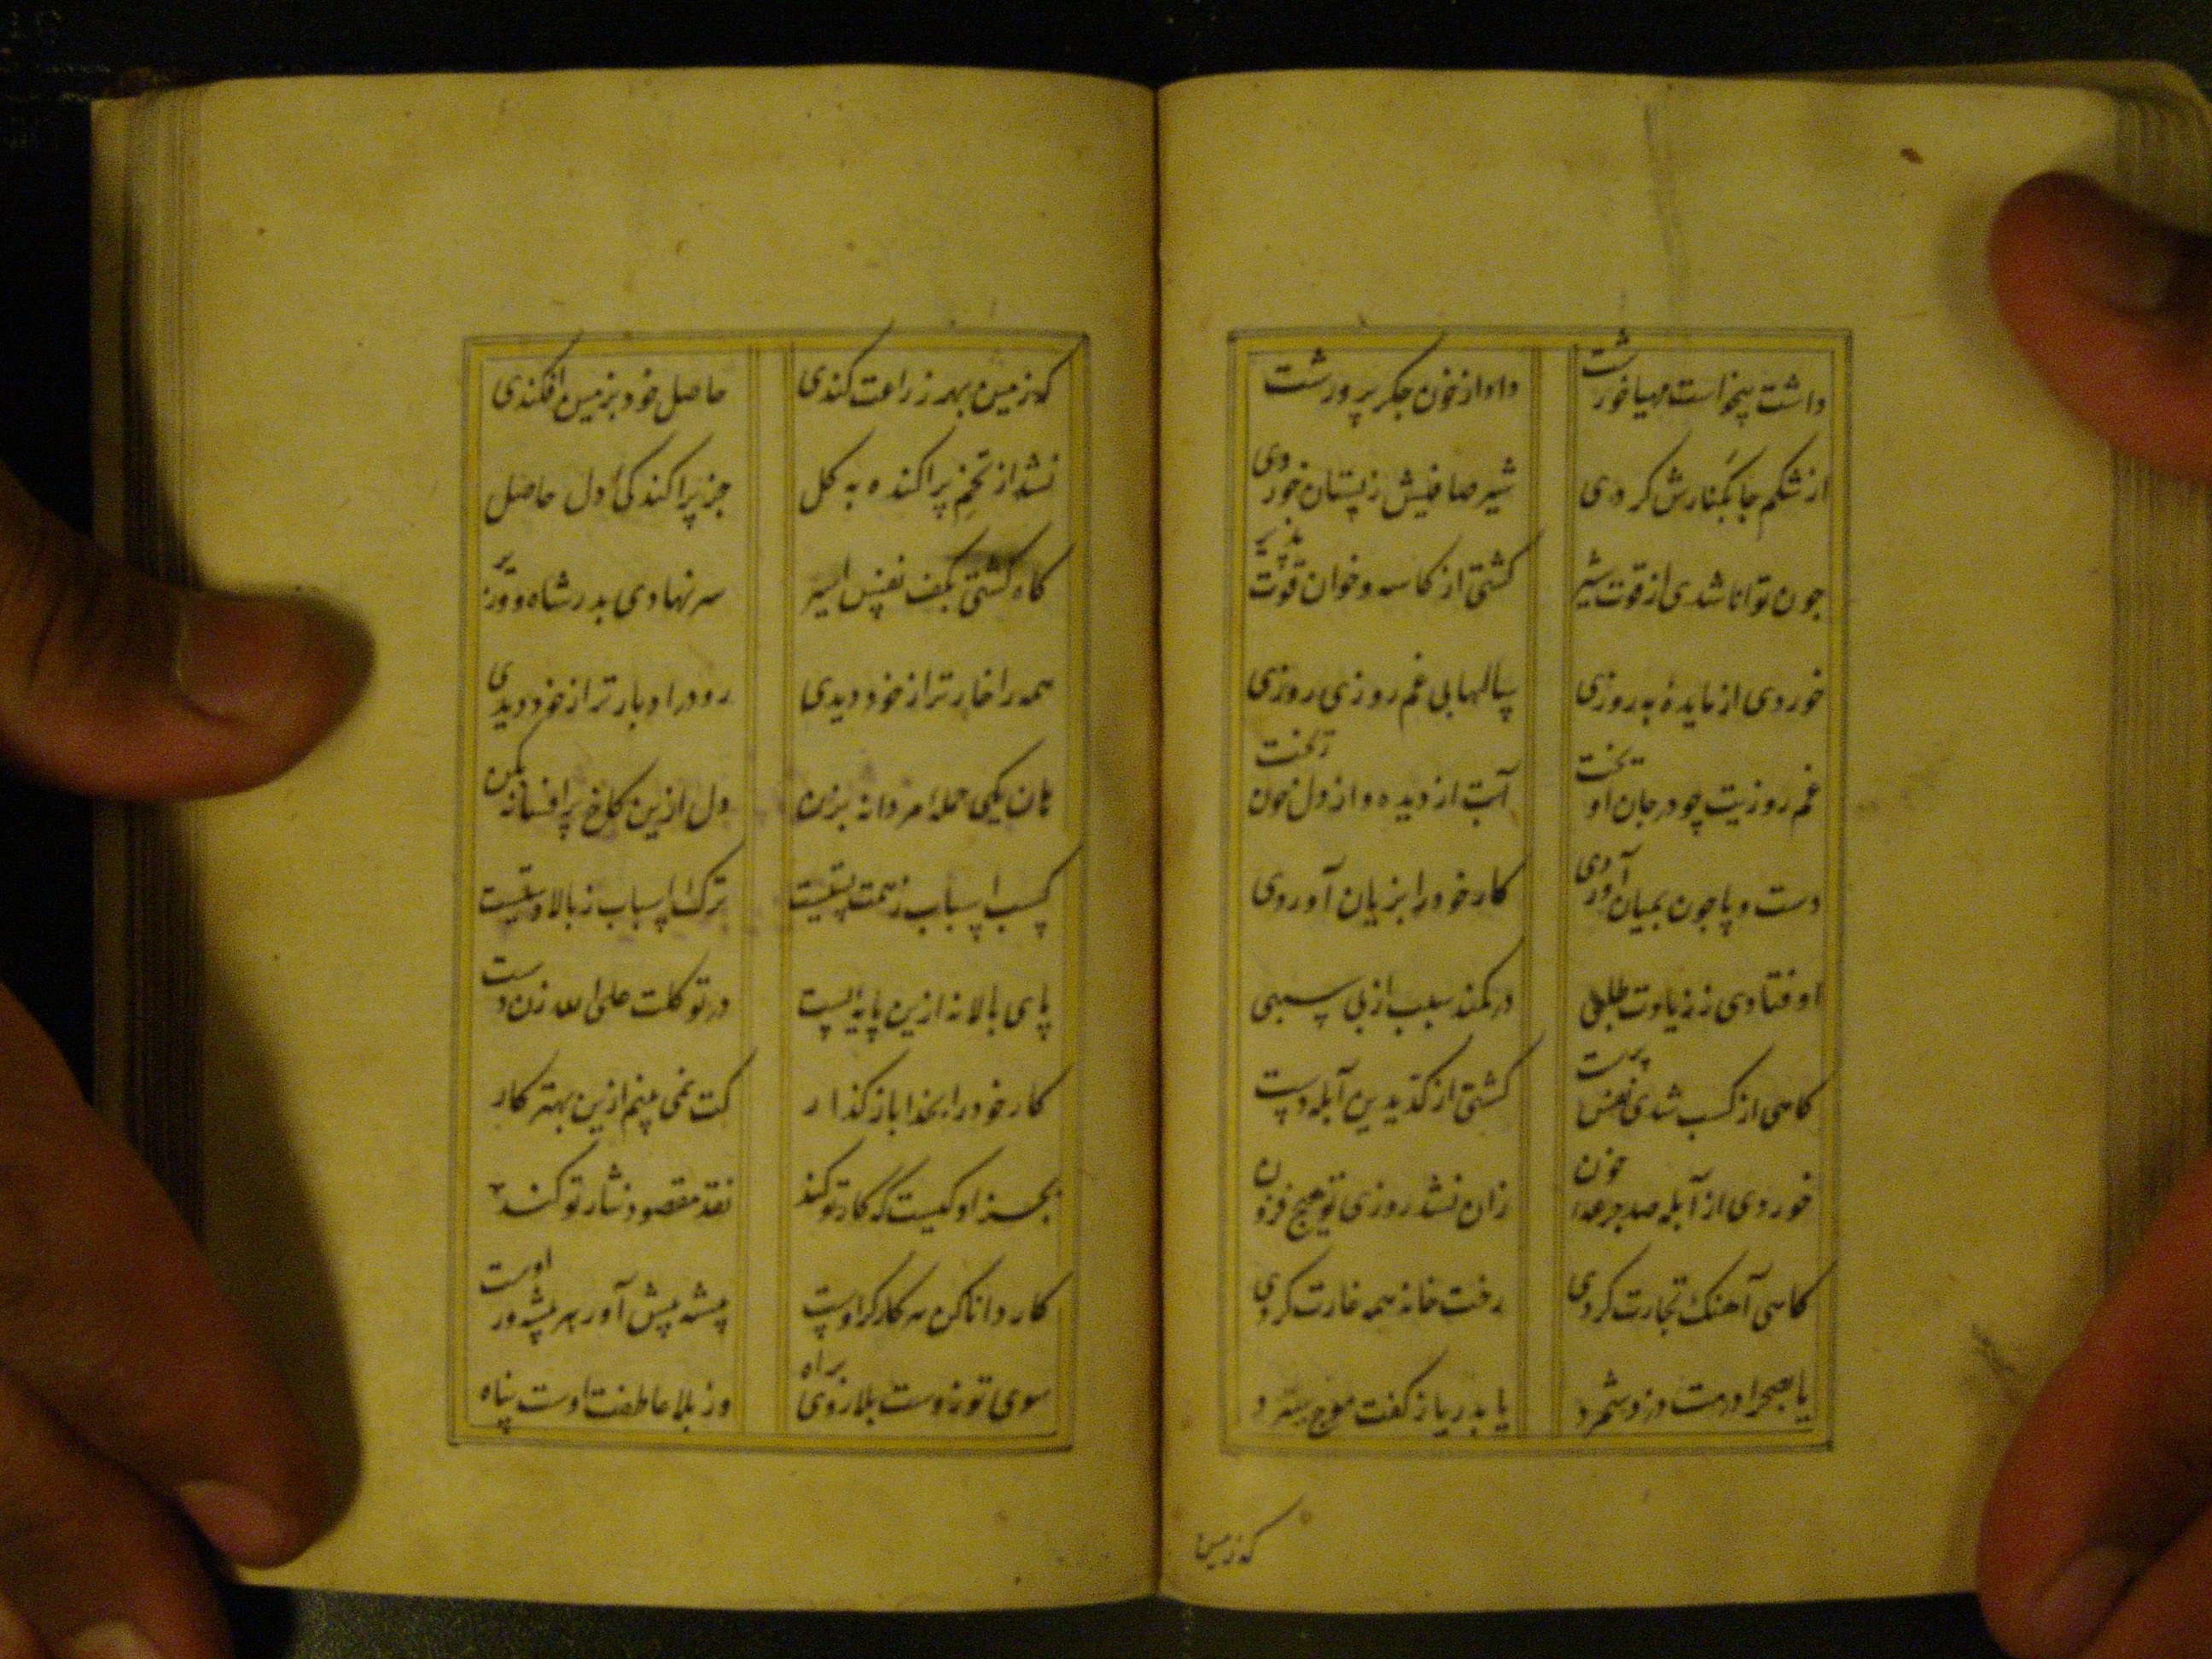 داشت بیخواست مهیا خورشت داد از خون جکر پرورشت
از شکم جا بکنارش کردی شیر صافیش ز پستان خوردی
چون توانا شدی از قوت شیر کشتی از کاسه و خوان قوت پذیر
خوردی از مایدهٔ به روزی سالها بی غم روزی روزی
غم روزیت چو در جان آویخت آبت از دیده و از دل خون ریخت
دست و پا چون بمیان آوردی کار خود را بزیان آوردی
اوفتادی ز زیادت طلبی در کمند سبب از بی سببی
کاهی از کسب شدی نفس پرست کشتی از کدیدین آبله دست
خوردی از آبله صد جرعه خون زان نشد روزی تو هیچ فزون
کاهی آهنک تجارت کردی رخت خانه همه غارت کردی
یا بصحرا درمت دزد شمرد یا بدریا ز کفت موج ببرد
که زمین
که زمین بهر زراعت کندی حاصل خود بزمین افکندی
نشد از تخم پراکنده به کل جز پراکندکی دل حاصل
کاه کشتی بکف نفس اسیر سر نهادی بدر شاه و وزیر
همه را خوارتر از خود دیدی رو در ادبارتر از خود دیدی
هان یکی حمله مردانه بزن دل ازین کاخ پر افسانه بکن
کسب اسباب ز همت پستیست ترک اسباب ز بالادستیست
پای بالا نه ازین پایه پست در توکلت علی الله زن دست
کار خود را بخدا باز کذار کت نمی بینم ازین بهتر کار
بجز او کیست که کار تو کند نقد مقصود نثار تو کند
کار دانا کن هر کارکر اوست پیشه پیش آور هر پیشه‌ور اوست
سوی تو زوست بلا روی براه وز بلا عاطفت اوست پناه